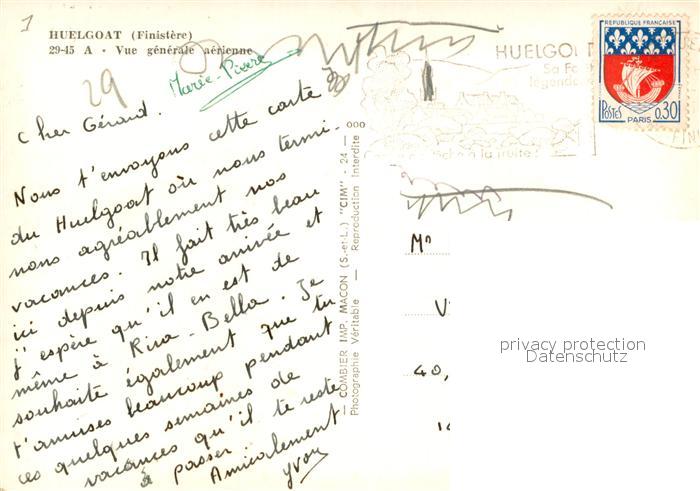 1
HUELGOAT (Finistère)
29-45 A - Vue générale aérienne
29
Marie-Pierre
Cher Gérard.
Nous t'envoyons cette carte
du Huelgoat où nous termi-
nons agréablement nos
vacances. Il fait très beau
ici depuis notre arrivée et
j'espère qu'il en est de
même à Riva-Bella. Je
souhaite également que tu
t'amuses beaucoup pendant
ces quelques semaines de
vacances qu'il te reste
à passer. Amicalement
Yvon
— COMBIER IMP. MACON (S.-et-L.) "CIM" - 24 - 000
Photographie Véritable - Reproduction Interdite
HUELGOAT
Sa Fo
légend
à la truite
REPUBLIQUE FRANÇAISE
POSTES 0,30
PARIS
Mn
V
40,
privacy protection
Datenschutz